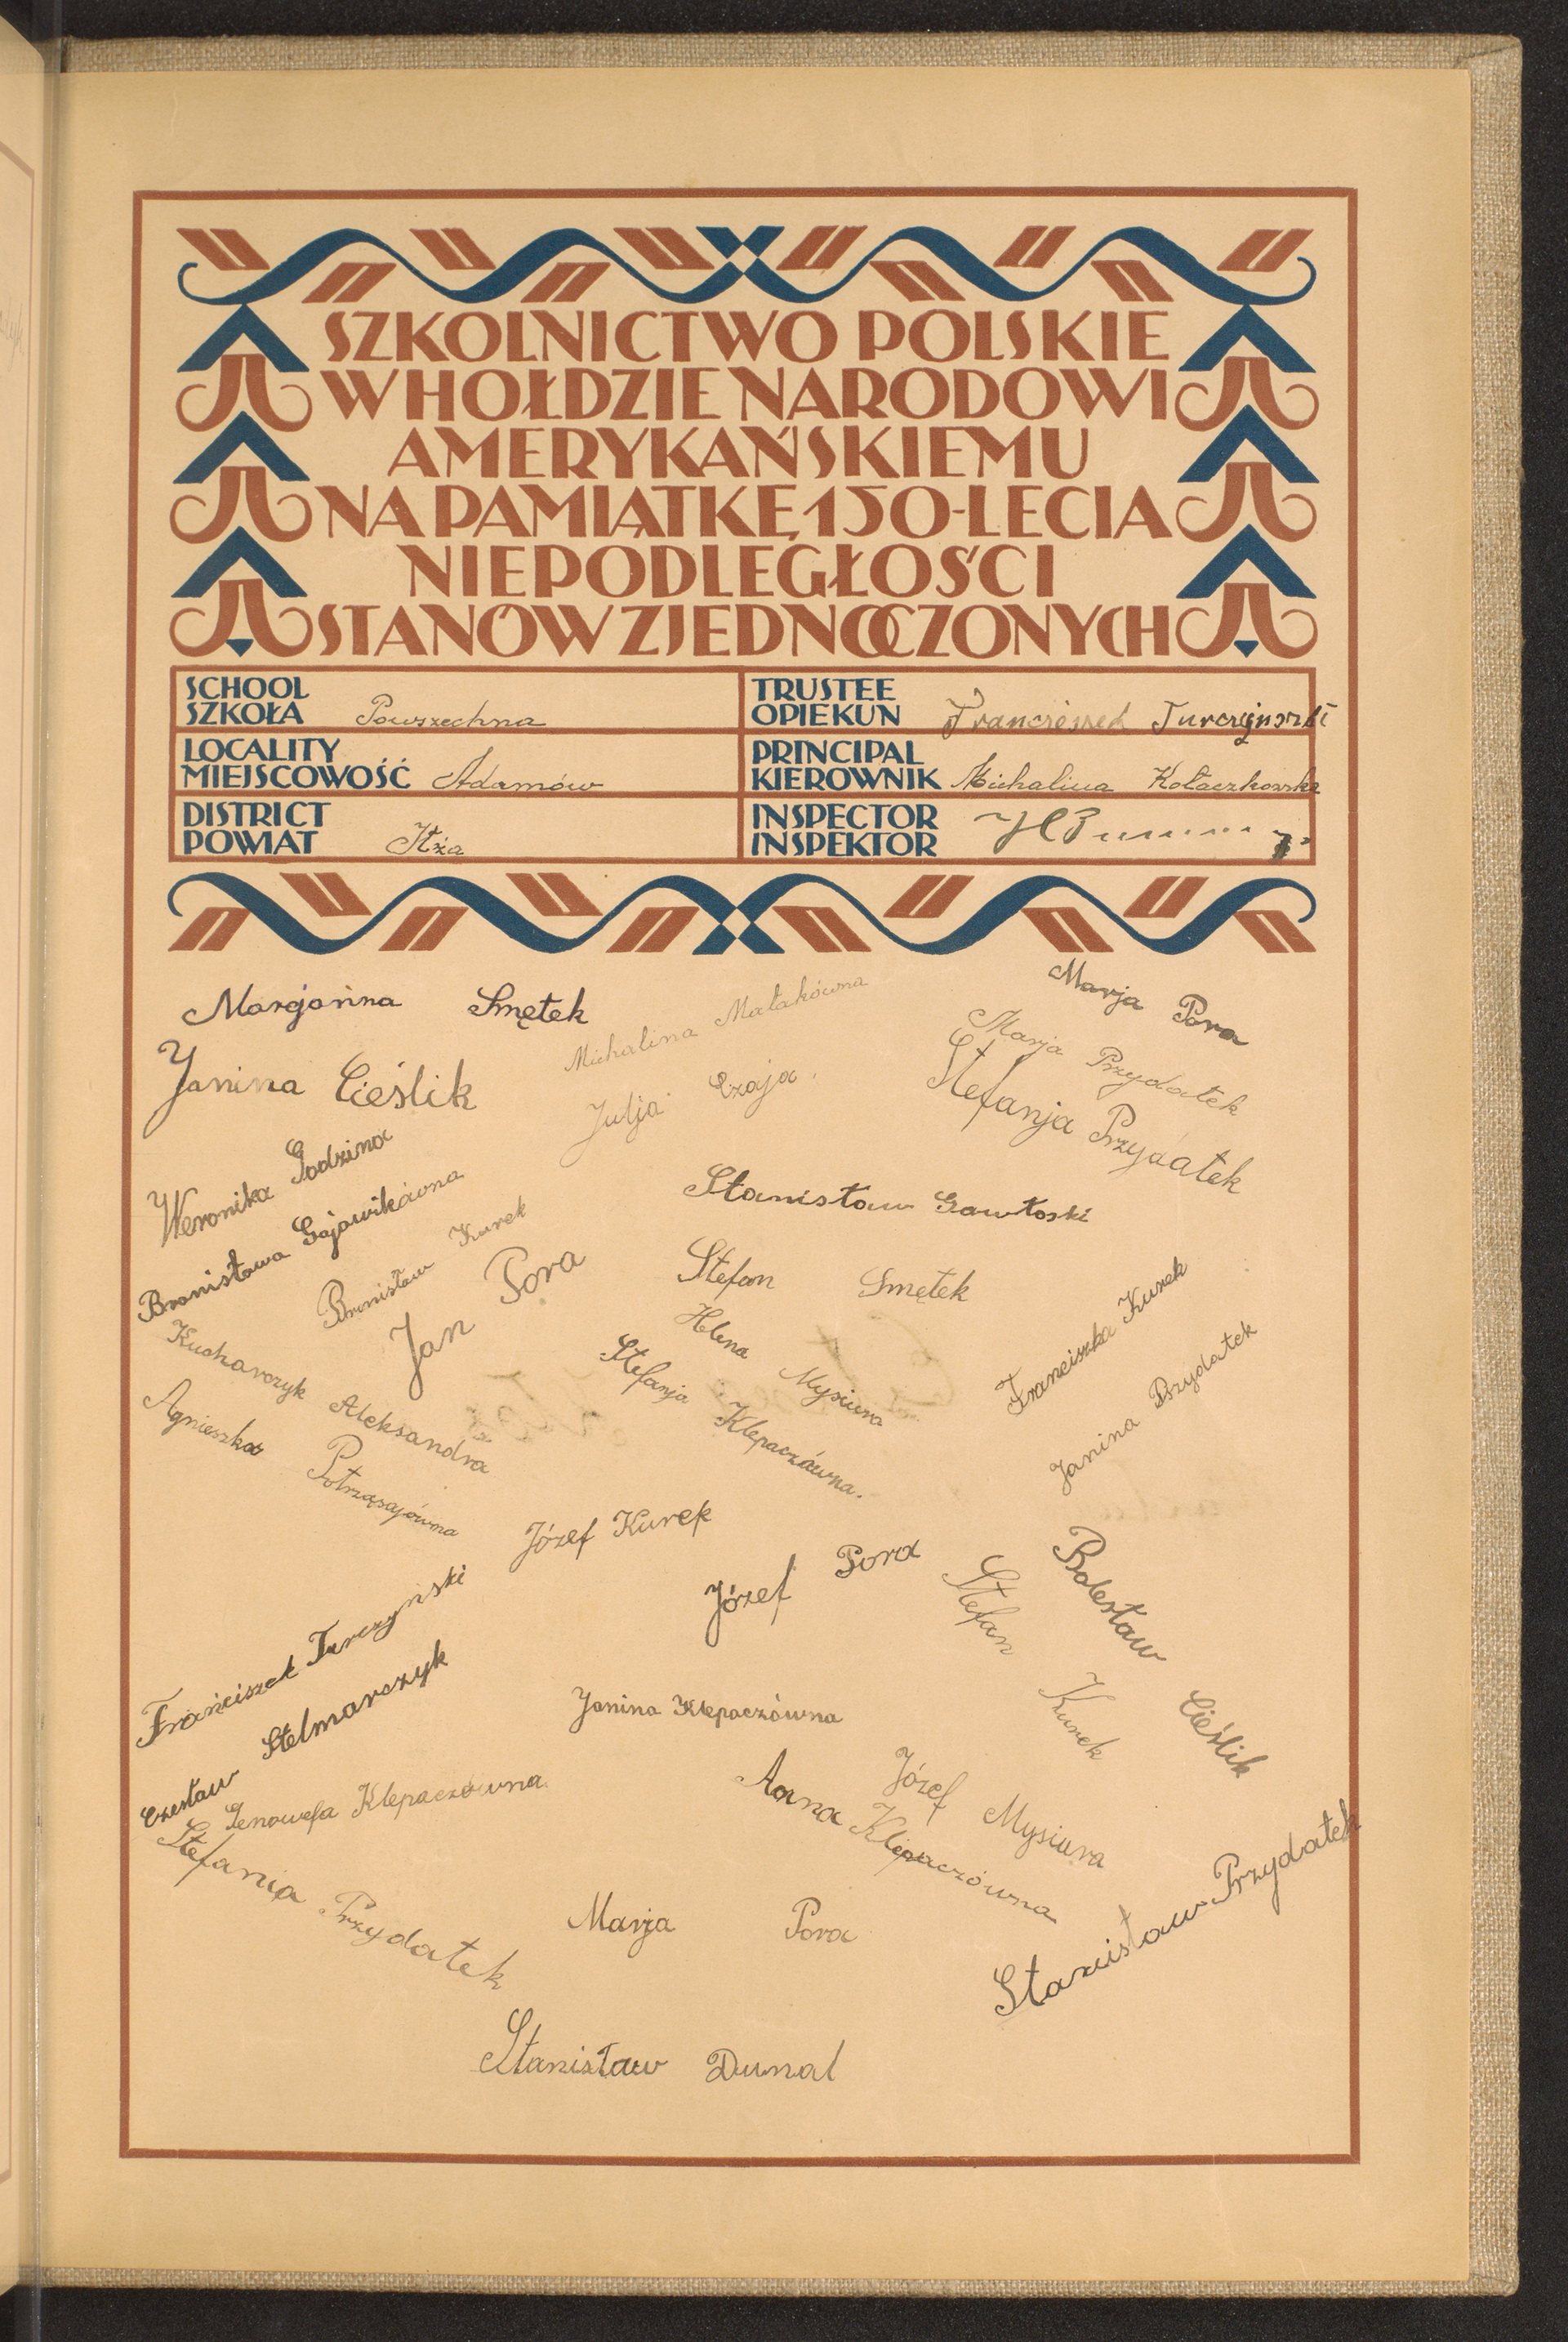 SZKOLNICTWO POLSKIE
W HOŁDZIE NARODOWI
AMERYKAŃSKIEMU
NA PAMIĄTKĘ 150-LECIA
NIEPODLEGŁOŚCI
STANÓW ZJEDNOCZONYCH
SCHOOL
SZKOŁA Powszechna
TRUSTEE
OPIEKUN Franciszek Turczyński
LOCALITY
MIEJSCOWOŚĆ Adamów
PRINCIPAL
KIEROWNIK Michalina Kołaczkowska
DISTRICT
POWIAT Iłża
INSPECTOR
INSPEKTOR
Marjanna Smętek
Michalina Małakówna
Marja Pora
Janina Cieślik
Julja Czaja.
Marja Przydatek
Stefanja Przydatek
Weronika Godzina
Bronisława Gajowikówna
Stanisław Gawłoski
Bronisław Kurek
Jan Pora
Stefan Smętek
Kucharczyk Aleksandra
Helena Mysiura
Stefanja Klepaczówna.
Franciszka Kurek
Janina Przydatek
Agnieszka Potrząsajówna
Józef Kurek
Józef Pora
Stefan Kurek
Bolesław Cieślik
Franciszek Turczyński
Czesław Stelmarczyk
Janina Klepaczówna
Genowefa Klepaczówna
Anna Klepaczówna
Józef Mysiura
Stefania Przydatek
Marja Pora
Stanisław Przydatek
Stanisław Dunal